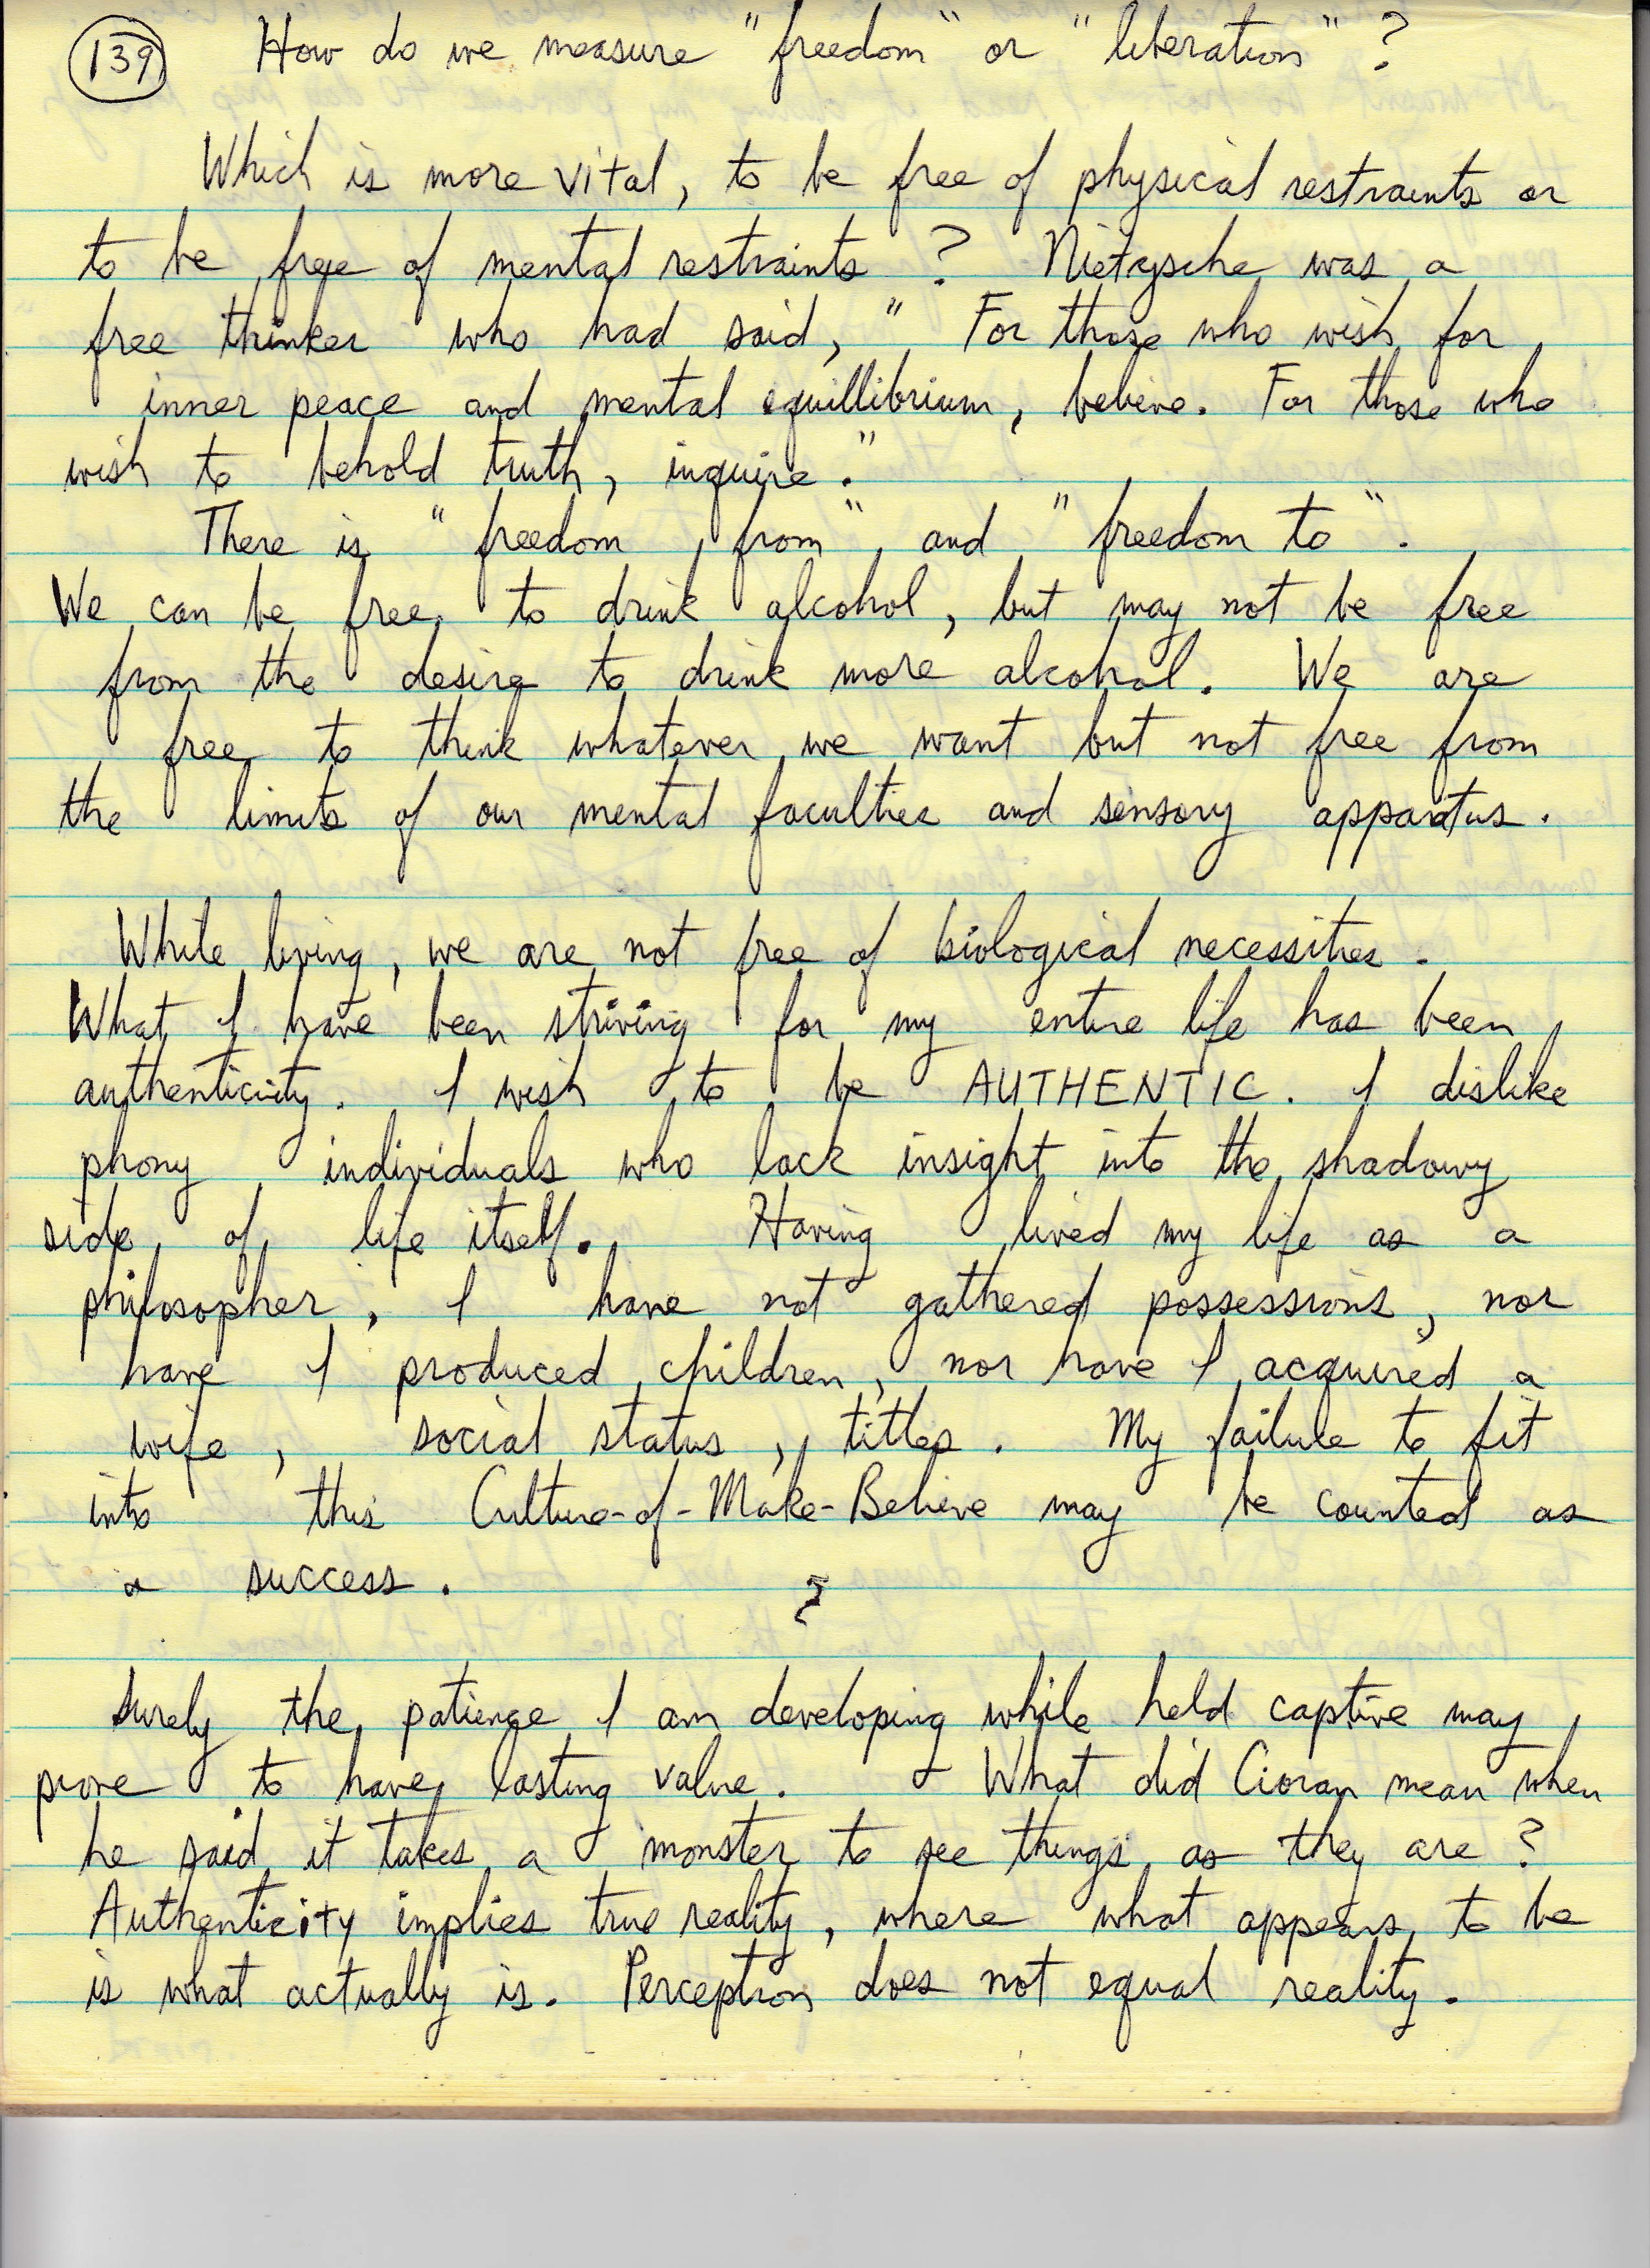 139 How do we measure "freedom" or "liberation" ?
Which is more vital, to be free of physical restraints or
to be free of mental restraints ? Nietzsche was a
free thinker who had said, " For those who wish for
inner peace and mental equillibrium, believe. For those who
wish to behold truth, inquire."
There is "freedom from" and "freedom to".
We can be free to drink alcohol, but may not be free
from the desire to drink more alcohol. We are
free to think whatever we want but not free from
the limits of our mental faculties and sensory apparatus.
While living, we are not free of biological necessities.
What I have been striving for my entire life has been
authenticity. I wish to be AUTHENTIC. I dislike
phony individuals who lack insight into the shadowy
side of life itself. Having lived my life as a
philosopher, I have not gathered possessions, nor
have I produced children, nor have I acquired a
wife, social status, titles. My failure to fit
into this Culture-of-Make-Believe may be counted as
a success.
Surely the patience I am developing while held captive may
prove to have lasting value. What did Cioran mean when
he said it takes a monster to see things as they are ?
Authenticity implies true reality, where what appears to be
is what actually is. Perception does not equal reality.